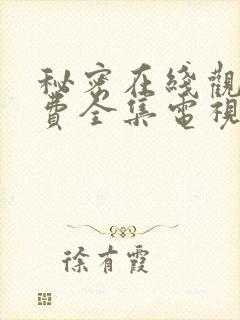 秘密在綫觀
費全集電視
徐有霞